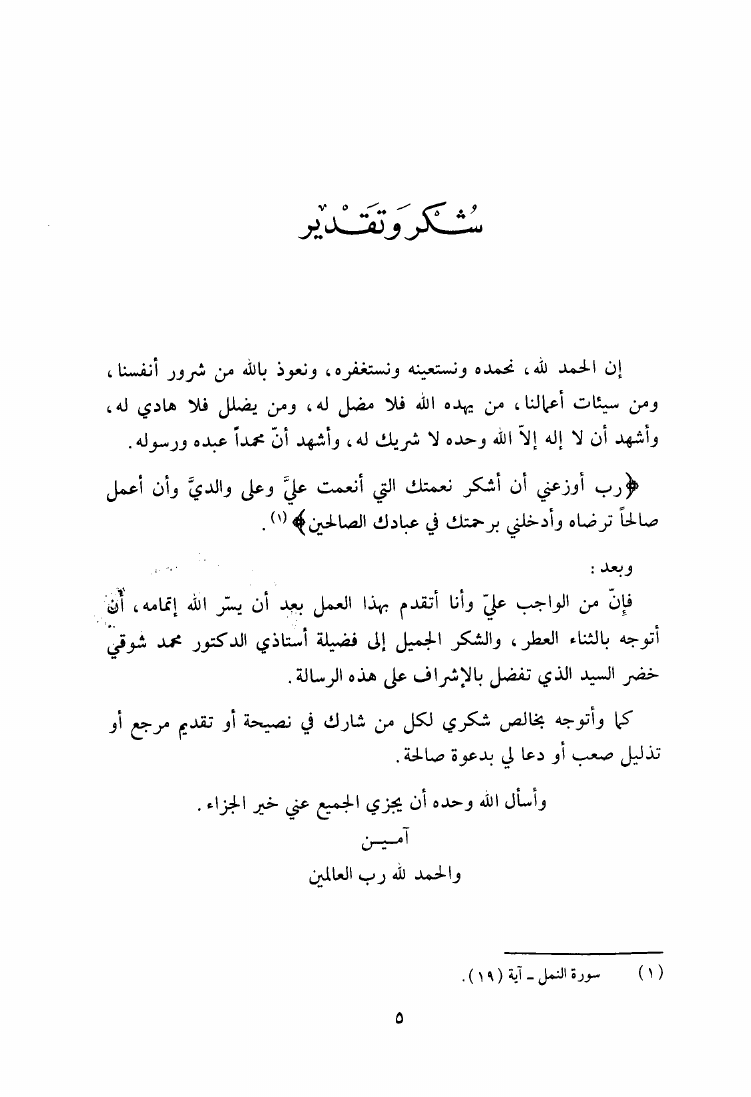 شُكْر وَتَقْدير
إن الحمد لله، نحمده ونستعينه ونستغفره، ونعوذ بالله من شرور أنفسنا،
ومن سيئات أعمالنا، من يهده الله فلا مضل له، ومن يضلل فلا هادي له،
وأشهد أن لا إله إلاّ الله وحده لا شريك له، وأشهد أنّ محمداً عبده ورسوله.
﴿رب أوزعني أن أشكر نعمتك التي أنعمت عليَّ وعلى والديَّ وأن أعمل
صالحاً ترضاه وأدخلني برحمتك في عبادك الصالحين﴾(١).
وبعد:
فإنّ من الواجب عليّ وأنا أتقدم بهذا العمل بعد أن يسّر الله إتمامه، أن
أتوجه بالثناء العطر، والشكر الجميل إلى فضيلة أستاذي الدكتور محمد شوقي
خضر السيد الذي تفضل بالإشراف على هذه الرسالة.
كما وأتوجه بخالص شكري لكل من شارك في نصيحة أو تقديم مرجع أو
تذليل صعب أو دعا لي بدعوة صالحة.
وأسأل الله وحده أن يجزي الجميع عني خير الجزاء.
آمـيـن
والحمد لله رب العالمين
(١) سورة النمل ـ آية (١٩).
٥